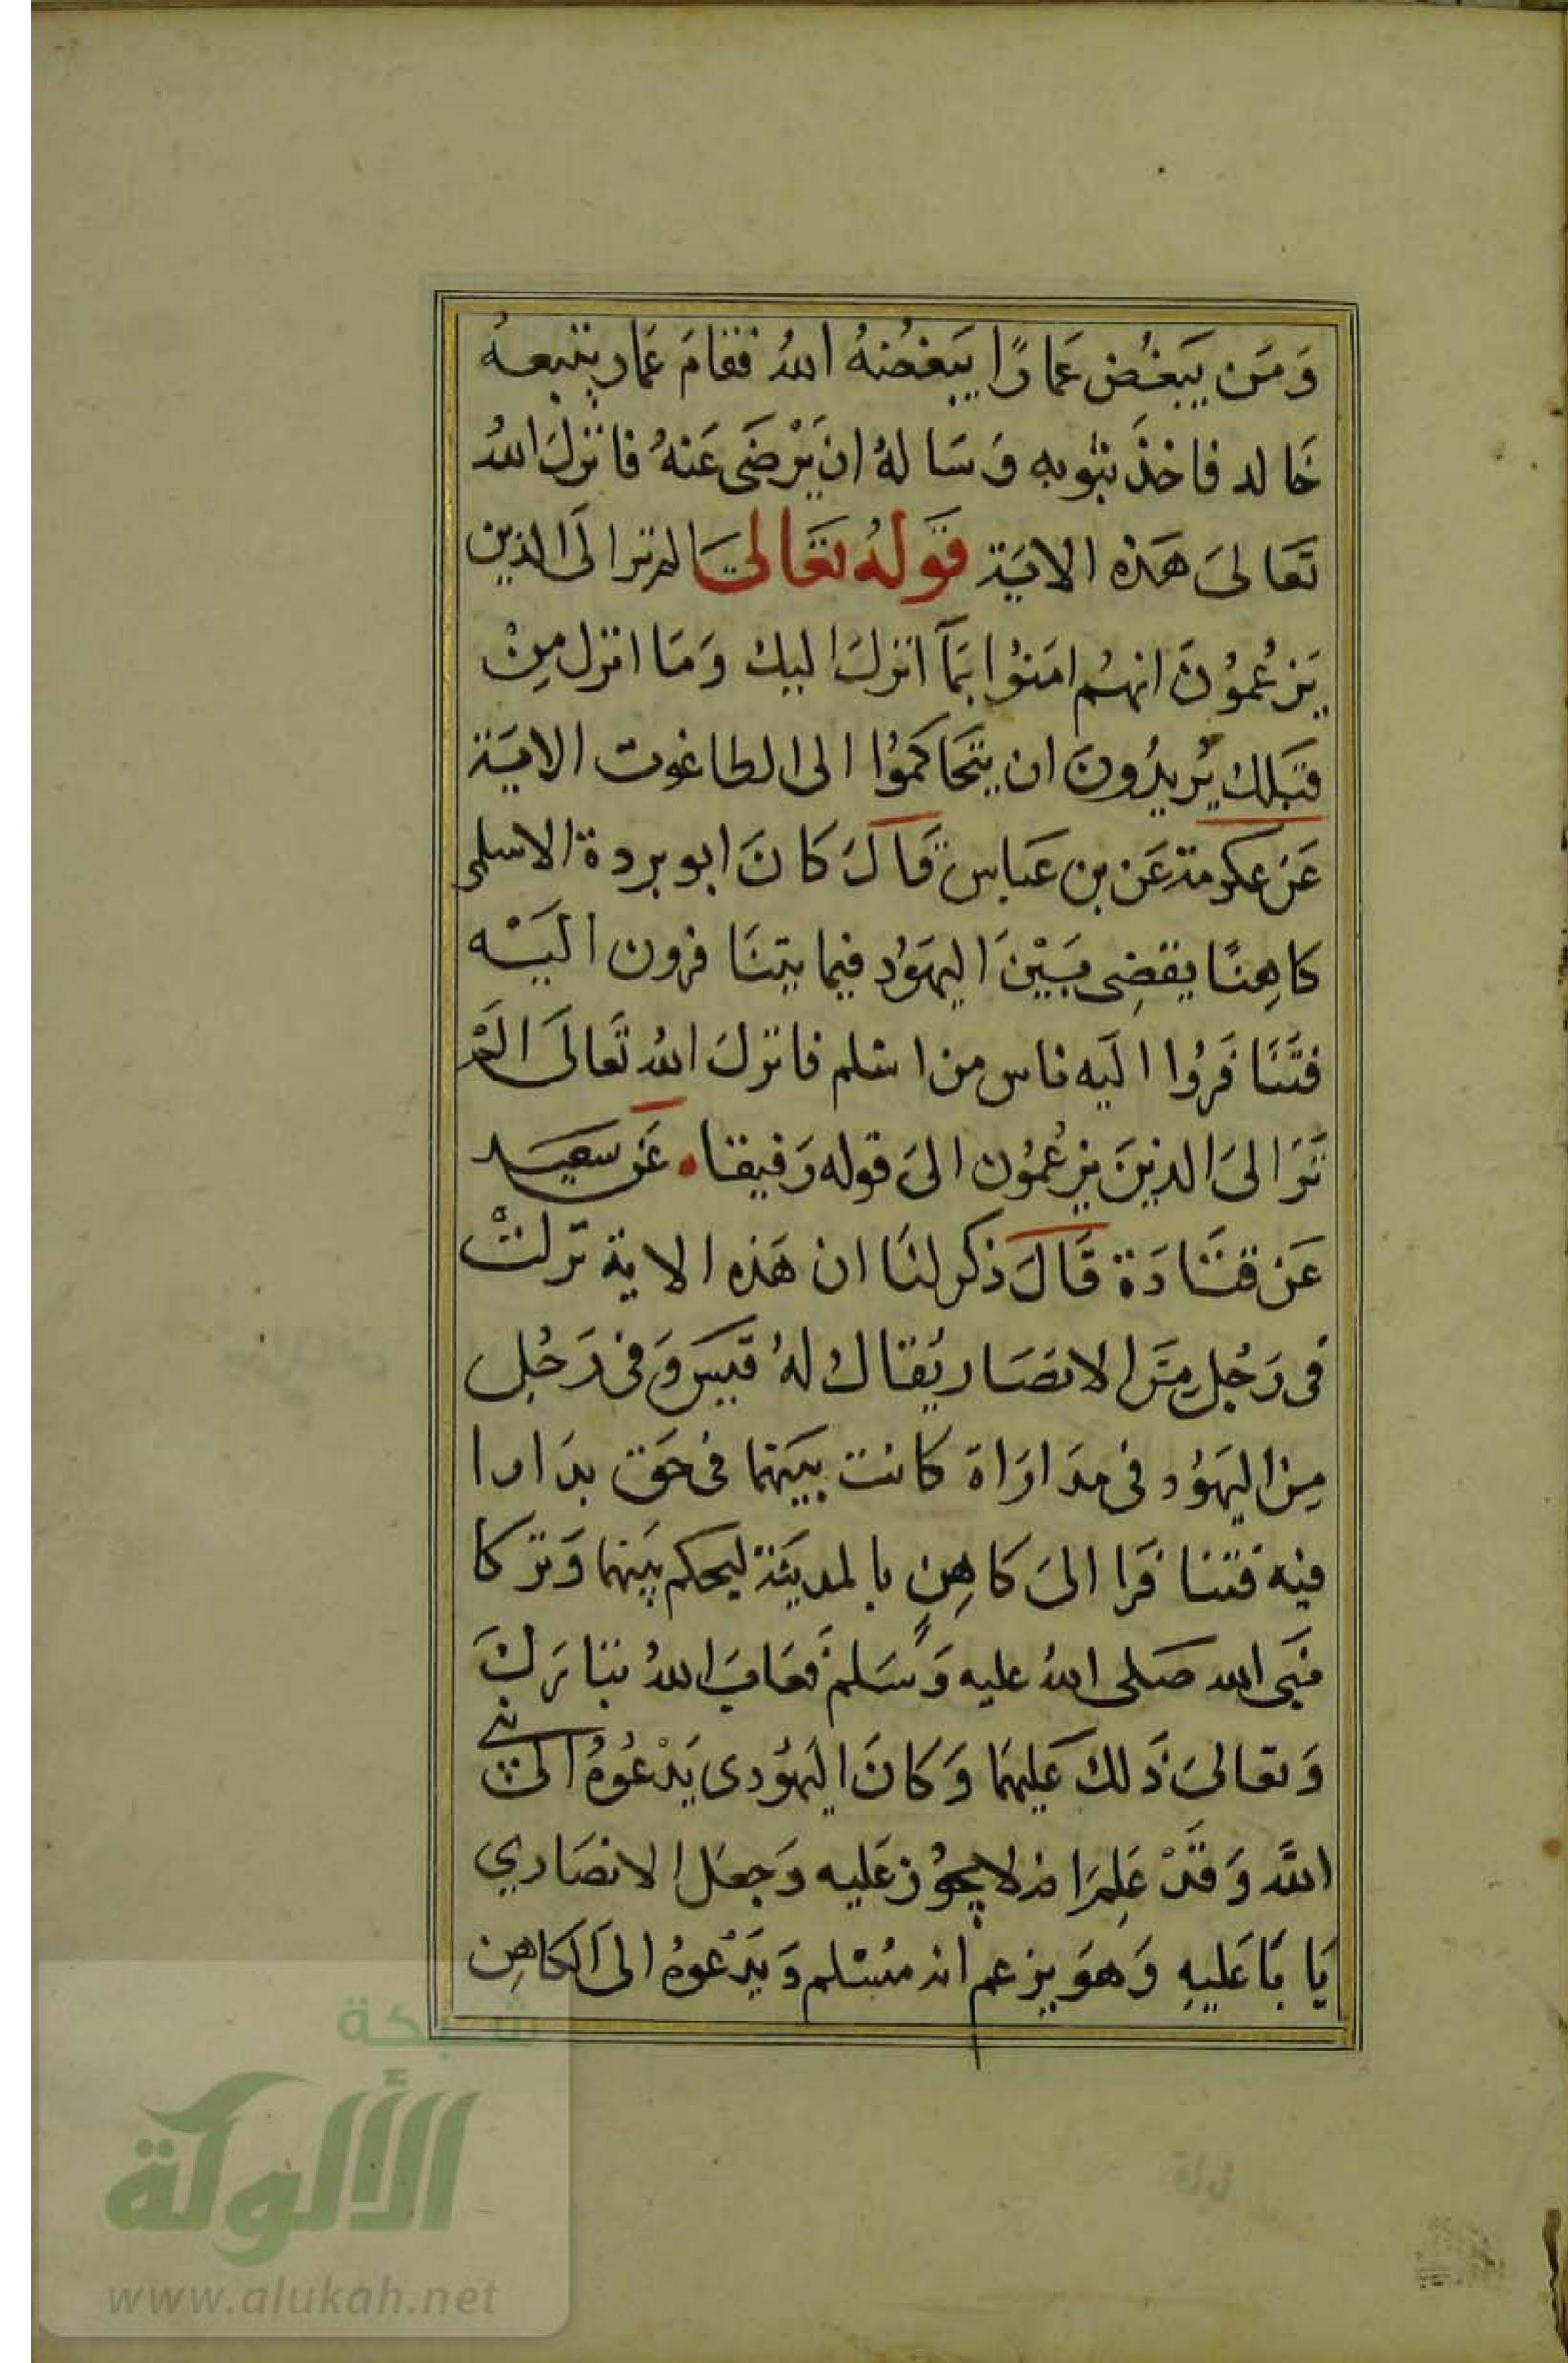 وَمَن يَبغُض عَمارًا يَبغضهُ اللهُ فقامَ عَمار يتبعهُ
خَالد فاخذَ بثوبه وَسَالهُ ان يَرْضَى عَنهُ فانزلَ اللهُ
تَعَالىَ هَذه الايَة قَولهُ تعَالىَ الم تر الَى الذين
يَزعُموُنَ انهُم امَنوُا بمَآ انزلَ اليك وَمَا انزل مِنْ
قبَلك يُريدُونَ ان يتحَاكموُا الى الطاغوت الايَة
عَن عكرمة عَن بن عَباس قَالَ كانَ ابو بردة الاسلمي
كاهِنًا يقضِى بَيْنَ اليهَوُد فيما يتنَافرون اليَـْه
فتَنَافَرُوا اليَه ناس من اسْلم فانزلَ اللهُ تَعَالىَ الَمْ
تَرَ الىَ الذينَ يزعُمُون الىَ قوله رَفيقا . عَن سَعيَد
عَن قتَادَة قَالَ ذكر لنَا ان هَذه الاية نزلتْ
فى رَجُلٍ مِنَ الانصَار يُقالُ لهُ قيس وَفى رَجُل
مِن اليهَوُد فى مدَارَاة كانت بينَهما فى حَق بدَارا
فيه فتنافَرا الىَ كاهِنٍ بالمديَنة ليحكم بَينهما وَتركا
نبَى الله صَلى اللهُ عليه وَسَلمَ فعَابَ اللهُ تبَارَكَ
وَتعالىَ ذَلك عَليهمَا وَكانَ اليهوُدى يَدْعُوهُ الى نبي
اللَّه وَقَدْ عَلِمَ انه لا يجوُز عَليه وَجعَل الانصَاري
يَابَا عَليهِ وَهوَ يزعم انه مُسْلم وَيَدْعُوهُ الىَ الكاهِن
شبكة
الألوكة
www.alukah.net